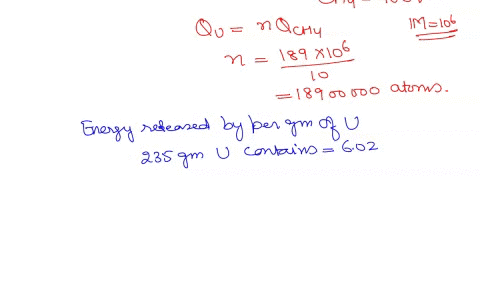 Q_U = n Q_CH4 1M=10^6
n = 189×10^6 / 10
= 18900000 atoms.
Energy released by per gm of U
235 gm U contains = 6.02